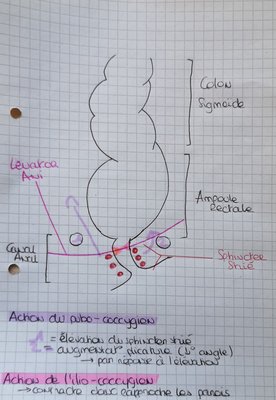 Colon
Sigmoïde
Levator
Ani
Ampoule
Rectale
Canal
Anal
Sphincter
strié
Action du pubo-coccygien
= élévation du sphincter strié
= augmentat° (↓° angle)
→ par réponse à l'élévation
Action de l'ilio-coccygien
→ contracte donc rapproche les parois